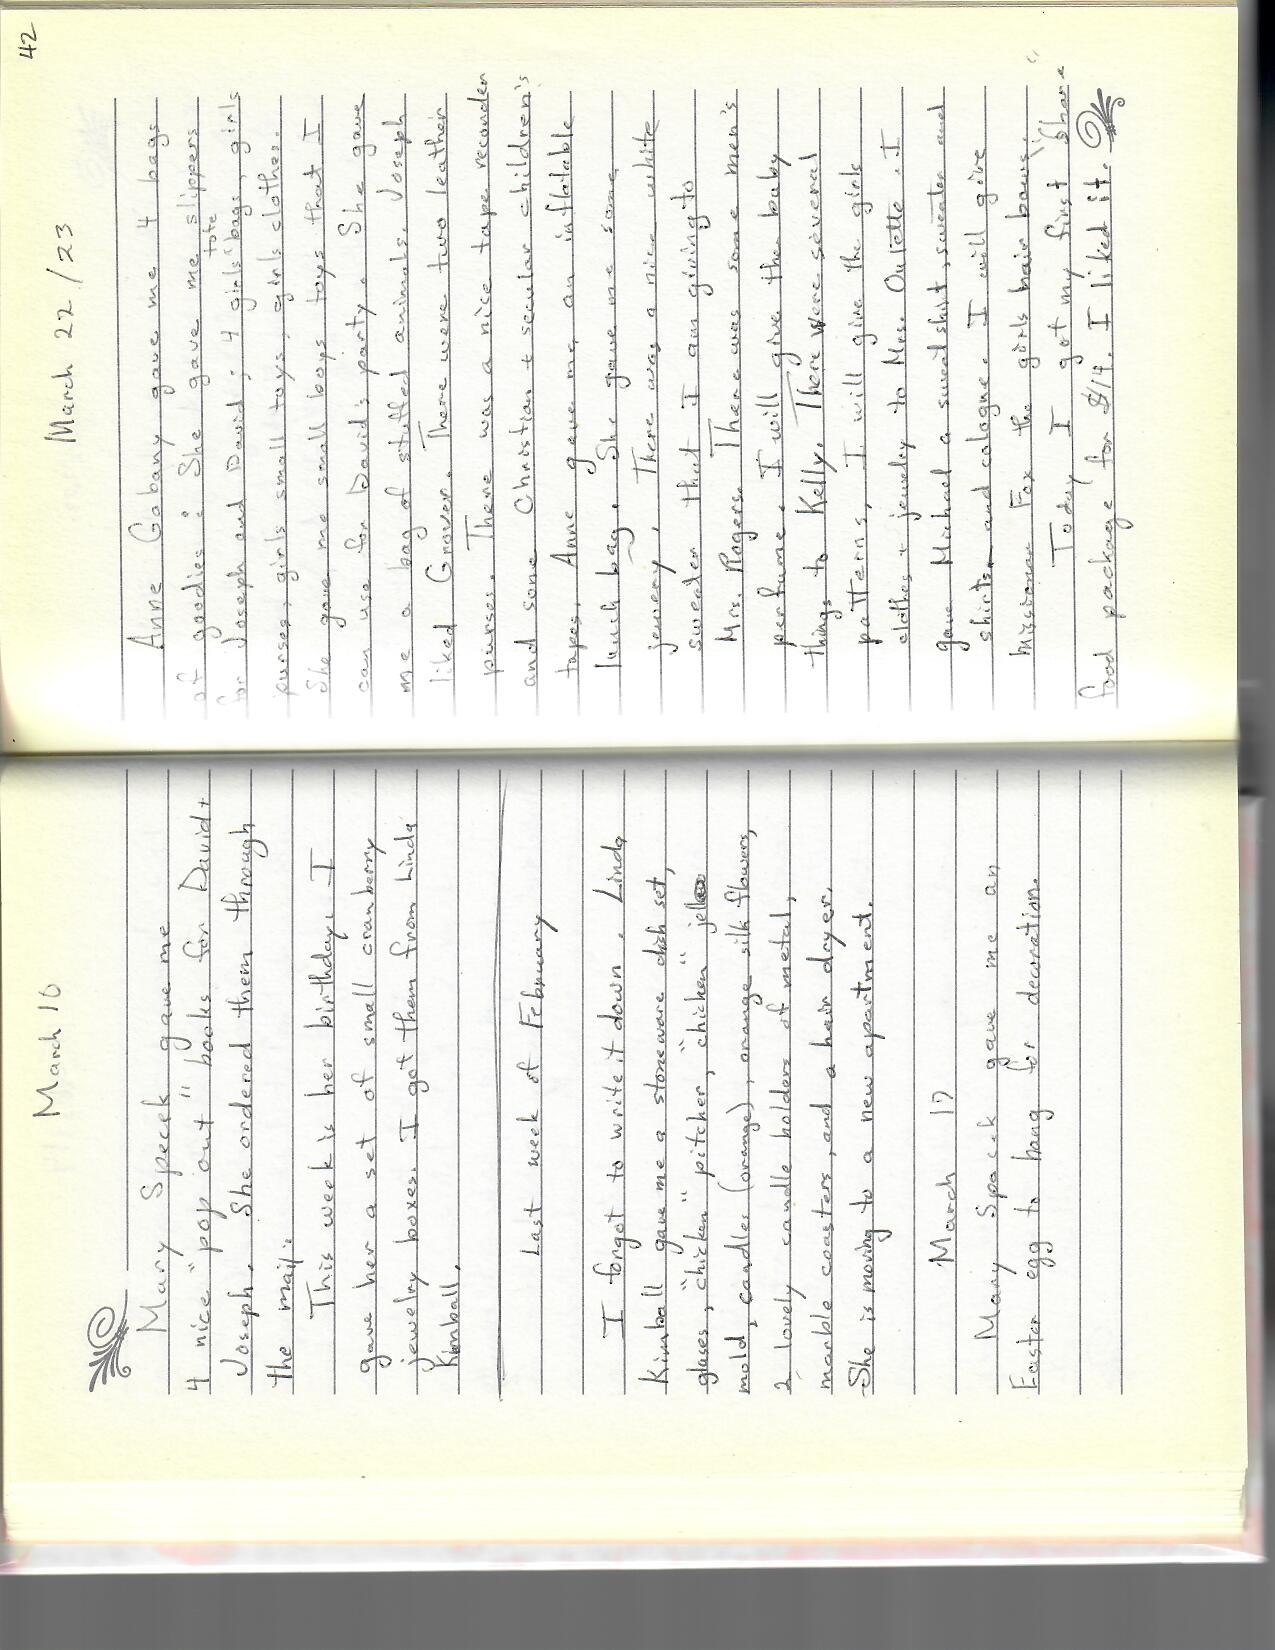 March 16
Mary Speck gave me
4 nice "pop out" books for David +
Joseph. She ordered them through
the mail.
This week is her birthday. I
gave her a set of small cranberry
jewelry boxes. I got them from Linda
Kimball.
Last week of February
I forgot to write it down. Linda
Kimball gave me a stoneware dish set,
glases, "chicken" pitcher, "chicken" jello
mold, candles (orange), orange silk flowers,
2 lovely candle holders of metal,
marble coasters, and a hair dryer.
She is moving to a new apartment.
March 17
Mary Speck gave me an
Easter egg to hang for decoration.
42
March 22/23
Anne Gabany gave me 4 bags
of goodies: She gave me slippers
for Joseph and David; 4 girls' tote bags, girls
purses, girls small toys, girls clothes.
She gave me small boys toys that I
can use for David's party. She gave
me a bag of stuffed animals. Joseph
liked Grover. There were two leather
purses. There was a nice tape recorder
and some Christian + secular children's
tapes. Anne gave me an inflatable
lunch bag. She gave me some
jewery, There was a nice white
sweater that I am giving to
Mrs. Rogers. There was some men's
perfume. I will give the baby
things to Kelly. There were several
patterns, I will give the girls
clothes + jewelry to Mrs. Oulette. I
gave Michael a sweatshirt, sweater and
shirts and cologne. I will give
missionar Fox the girls hair bows.
Today I got my first "Share"
food package for $14. I liked it.